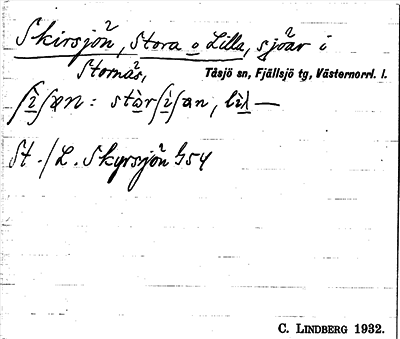 Skirsjön, Stora o Lilla, sjöar i
Stornäs,
Tåsjö sn, Fjällsjö tg, Västernorrl. l.
St. / L. Skyrsjön G54
C. LINDBERG 1932.